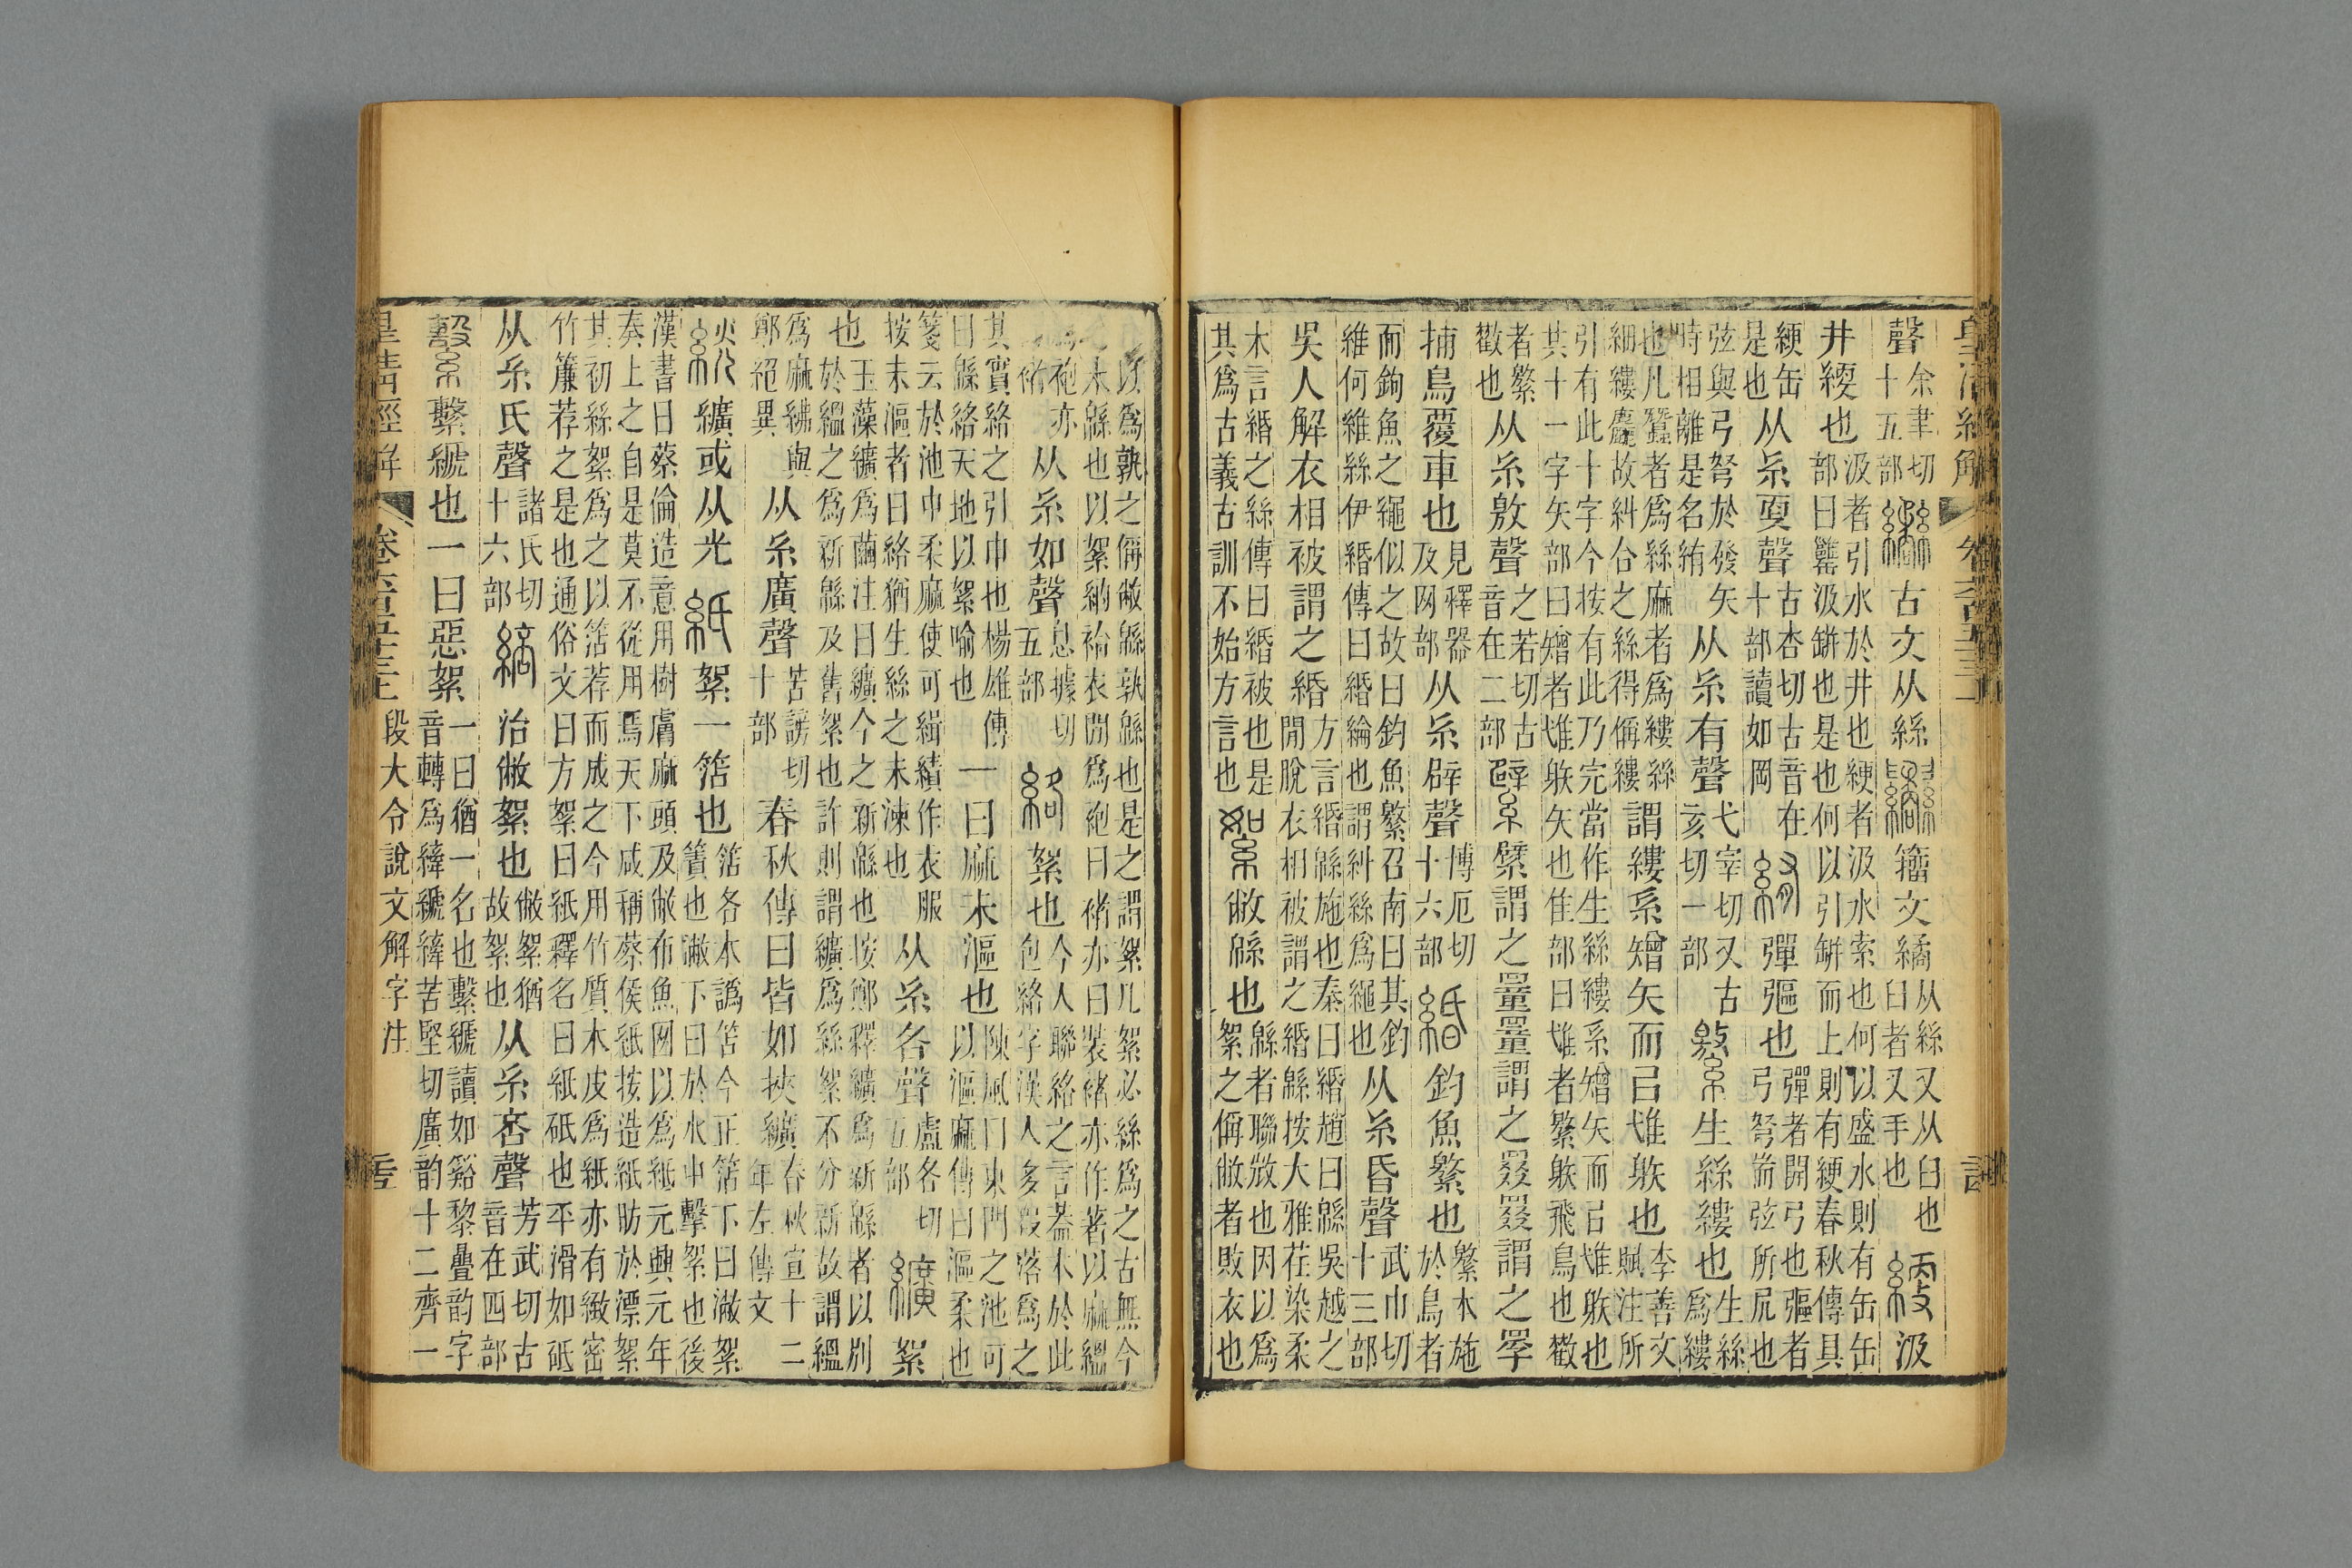 聲余聿切十五部古文从絲籒文繘从絲又从臼也臼者又手也綆汲
井綆也汲者引水於井也綆者汲水索也何以盛水則有缶缶部曰䍌汲缾也是也何以引缾而上則有綆春秋傳具
綆缶是也从糸㪅聲古杏切古音在十部讀如岡絠彈彄也彈者開弓也彄者弓弩耑弦所凥也
弦與弓弩於發矢時相離是名絠从糸有聲弋宰切又古亥切一部繳生絲縷也生絲爲縷
也凡蠶者爲絲麻者爲縷絲細縷麤故糾合之絲得偁縷謂縷系矰矢而㠯隿躲也李善文賦注所
引有此十字今按有此乃完當作生絲縷系矰矢而㠯隿躲也其十一字矢部曰矰者隿躲矢也隹部曰隿者繁躲飛鳥也歡
者繁歡也从糸敫聲之若切古音在二部繴繴謂之罿罿謂之罬罬謂之罦
捕鳥覆車也見釋器及网部从糸辟聲博厄切十六部緡釣魚繁也繁本施於鳥者
而鉤魚之繩似之故曰釣魚繁召南曰其釣維何維絲伊緡傳曰緡綸也謂糾絲爲繩也从糸昏聲武巾切十三部
吳人解衣相被謂之緡方言緡緜施也秦曰緡趙曰緜吳越之閒脫衣相被謂之緡緜按大雅荏染柔
木言緡之絲傳曰緡被也是其爲古義古訓不始方言也絮敝緜也緜者聯敚也因以爲絮之偁敝者敗衣也
以爲孰之偁敝緜孰緜也是之謂絮凡絮必絲爲之古無今之木緜也以絮納袷衣閒爲袍曰褚亦曰裝褚亦作著以麻縕
爲袍亦褚从糸如聲息據切五部絡絮也今人聯絡之言葢本於此包絡字漢人多叚落爲之
其實絡之引巾也楊雄傳曰緜絡天地以絮喻也一曰麻未漚也陳風曰東門之池可以漚麻傳曰漚柔也
箋云於池中柔麻使可緝績作衣服按未漚者曰絡猶生絲之未湅也从糸各聲盧各切五部纊絮
也玉藻纊爲繭注曰纊今之新緜也按鄭釋纊爲新緜者以別於縕之爲新緜及舊絮也許則謂纊爲絲絮不分新故謂縕
爲麻紼與鄭絕異从糸廣聲苦謗切十部春秋傳曰皆如挾纊春秋宣十二年左傳文
絖纊或从光紙絮一𥬔也𥬔各本譌笘今正𥬔下曰潎絮簀也潎下曰於水中擊絮也後
漢書曰蔡倫造意用樹膚麻頭及敝布魚网以爲紙元興元年奏上之自是莫不從用焉天下咸稱蔡侯紙按造紙昉於漂絮
其初絲絮爲之以𥬔荐而成之今用竹質木皮爲紙亦有緻密竹簾荐之是也通俗文曰方絮曰紙釋名曰紙砥也平滑如砥
从糸氏聲諸氏切十六部䋨治敝絮也敝絮猶故絮也从糸咅聲芳武切古音在四部
繫繫䙷也一曰惡絮一曰猶一名也繫䙷讀如谿黎疊韵字音轉爲縴䙷縴苦堅切廣韵十二齊一
段大令說文解字注